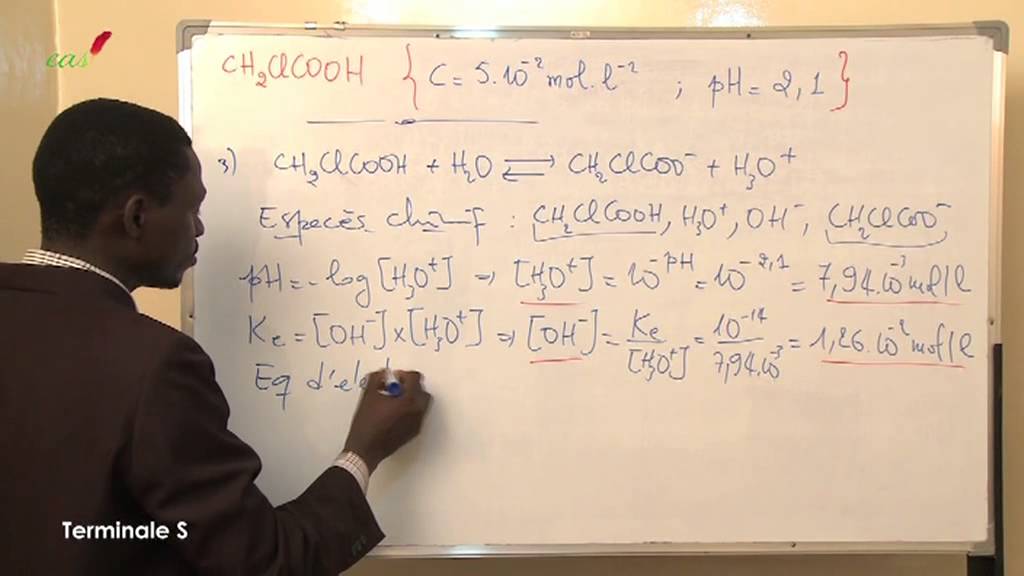 eas
CH₂ClCOOH { C = 5.10⁻² mol.l⁻² ; pH = 2,1 }
3) CH₂ClCOOH + H₂O ⇌ CH₂ClCOO⁻ + H₃O⁺
Espèces chimiq : CH₂ClCOOH, H₃O⁺, OH⁻, CH₂ClCOO⁻
pH = - log [H₃O⁺] ⇒ [H₃O⁺] = 10⁻ᵖᴴ = 10⁻²,¹ = 7,94.10⁻³ mol/l
Ke = [OH⁻] × [H₃O⁺] ⇒ [OH⁻] = Ke / [H₃O⁺] = 10⁻¹⁴ / 7,94.10⁻³ = 1,26.10⁻² mol/l
Eq d'élec
Terminale S